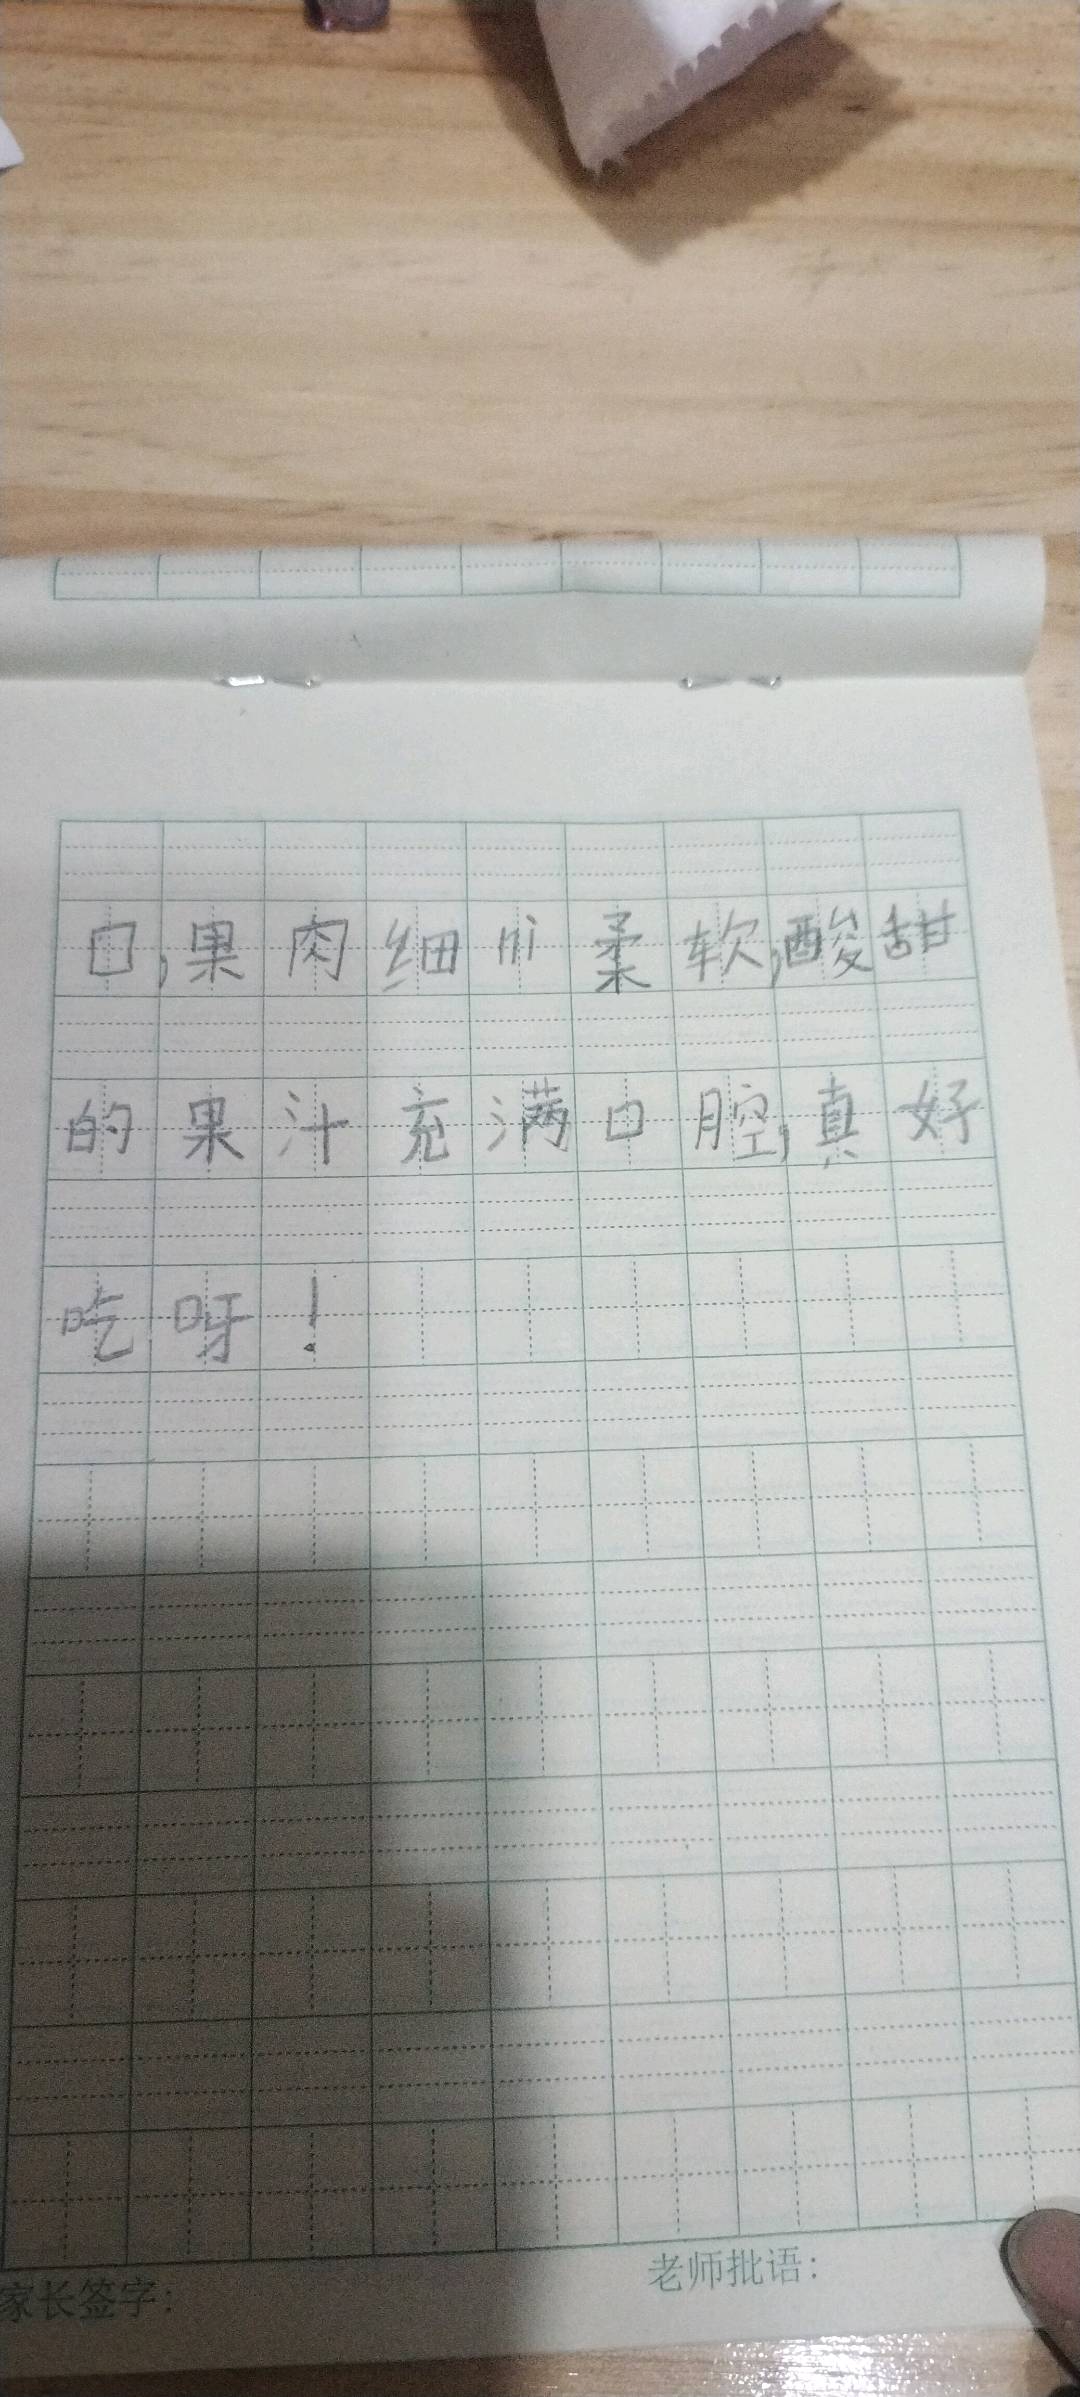 口,果肉细ni柔软,酸甜
的果汁充满口腔,真好
吃呀!
家长签字:
老师批语: